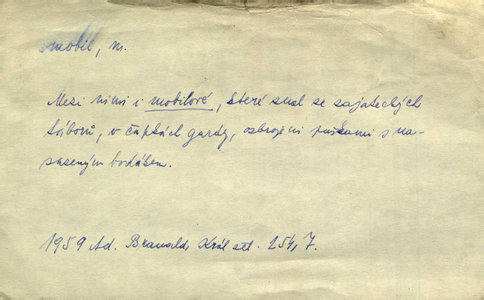 mobil, m.
Mezi nimi i mobilové, které znal ze zajateckých
táborů, v čapkách gardy, ozbrojeni puškami s na-
sazeným bodákem.
1959 Ad. Branald, Král žel. 254, 7.